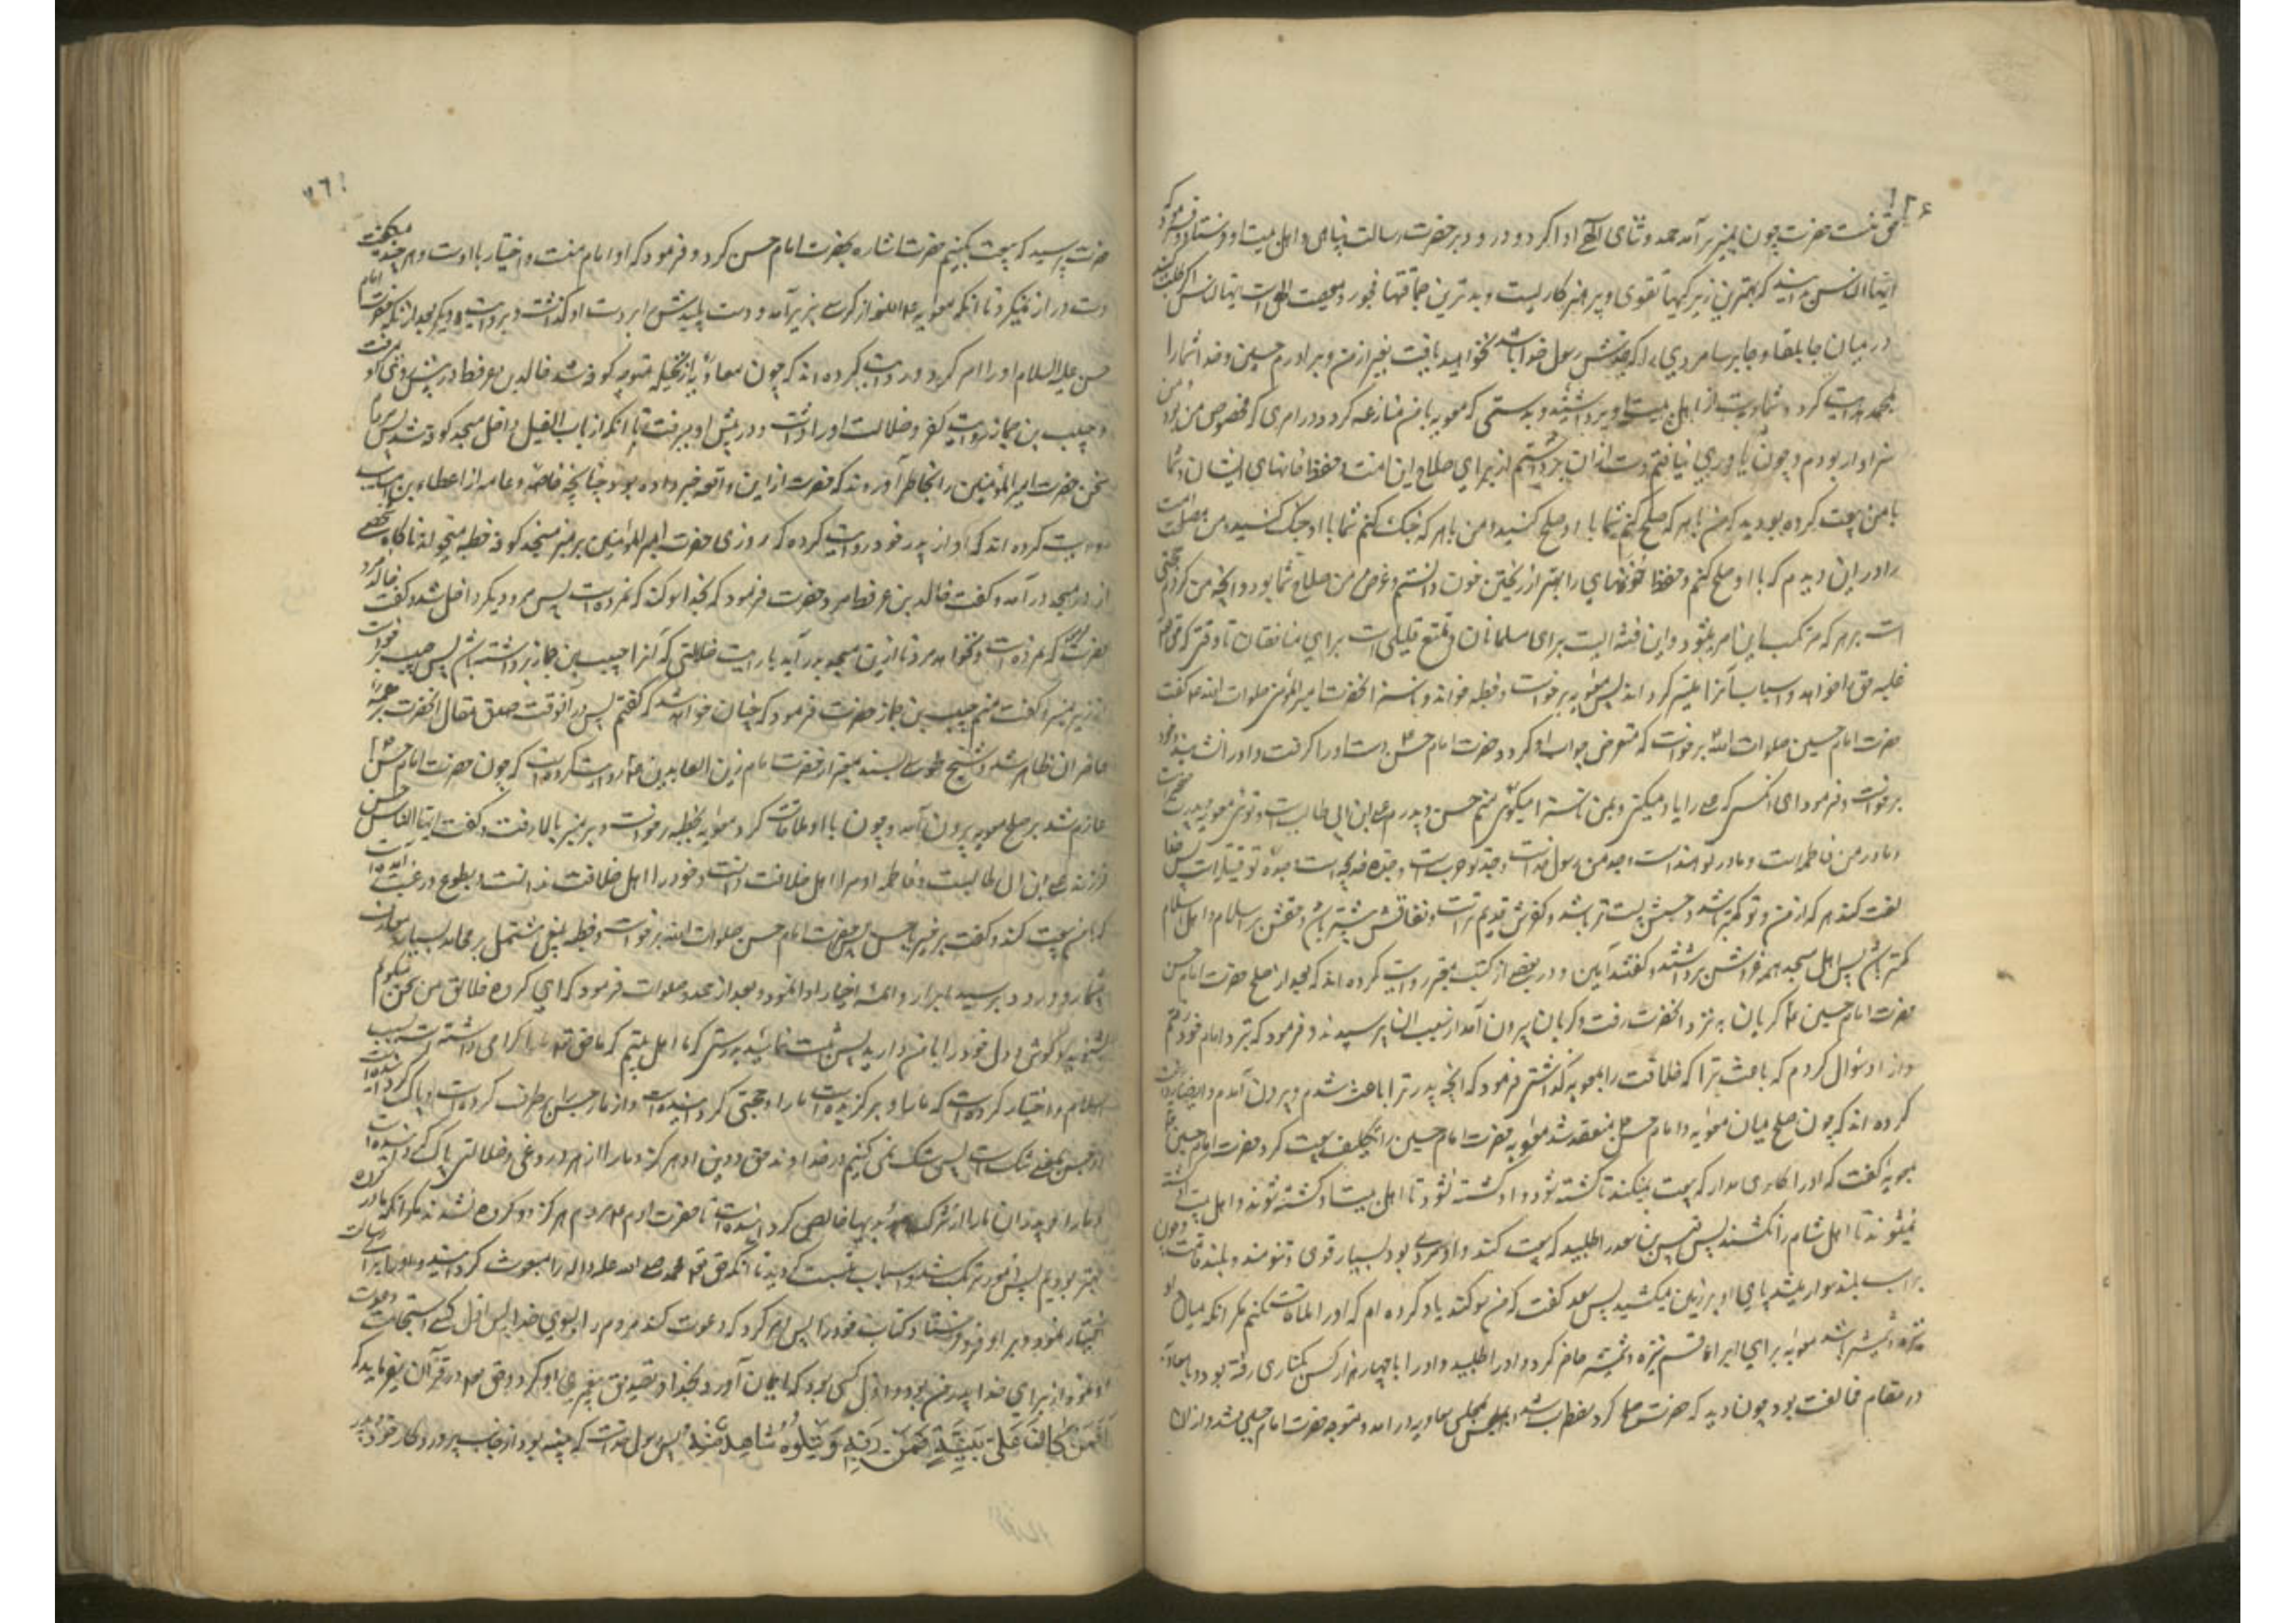 حق منست حضرت چون بمنبر برآمد حمد و ثنای الهی ادا کرد و درود بر حضرت رسالت پناهی و اهل بیت او فرستاد و فرمود که
ایها الناس بدانید که بهترین زیرکیها تقوی و پرهیزکاریست و بدترین حماقتها فجور و معصیت الهی است ایها الناس اگر طلب کنید
در میان جابلقا و جابرسا مردی را که جدش رسول خدا باشد نخواهید یافت بغیر از من و برادرم حسین و خدا شما را
بمحمد هدایت کرد و شما دست از اهل بیت او برداشتید و بدرستی که معویه با من منازعه کرد در امری که مخصوص من بود و من
سزاوار بودم و چون یاوری نیافتم دست از آن برداشتم از برای صلاح این امت و حفظ جانهای ایشان و شما
با من بیعت کرده بودید که من با هر که صلح کنم شما با او صلح کنید و من با هر که جنگ کنم شما با او جنگ کنید و من مصلحت امت
را در این دیدم که با او صلح کنم و حفظ خونهای را بهتر از ریختن خون دانستم و غرض من صلاح شما بود و آنچه من کردم حجتی
است بر هر که مرتکب این امر میشود و این فتنه ایست برای مسلمانان و تمتع قلیلی است برای منافقان تا وقتی که حق تعالی
غلبه حق را خواهد و اسباب آنرا میسر گرداند پس معویه برخواست و خطبه خواند و ناسزا بحضرت امیر المؤمنین صلوات الله علیه گفت
حضرت امام حسین صلوات الله برخواست که متعرض جواب او گردد حضرت امام حسن دست او را گرفت و او را نشانید و خود
برخواست و فرمود ای آنکسی که علی را یاد میکنی و بمن ناسزا میگوئی منم حسن و پدرم علی ابن ابی طالب است و توئی معویه و پدرت صخر است
و مادر من فاطمه است و مادر تو هند است و جد من رسول خداست و جد تو حرب است و جده من خدیجه است و جده تو فتیله است پس خدا
لعنت کند هر که از من و تو گمنام باشد و حسبش پست تر باشد و کفرش قدیم تر است و نفاقش بیشتر باشد و حقش بر اسلام و اهل اسلام
کمتر باشد پس اهل مسجد همه خروش برداشتند و گفتند آمین و در بعضی از کتب معتبر روایت کرده اند که بعد از صلح حضرت امام حسن
حضرت امام حسین گریان به نزد آنحضرت رفت و گریان بیرون آمد از سبب آن پرسیدند فرمود که بنزد امام خود رفتم
و از او سؤال کردم که باعث ترا که خلافت را بمعویه گذاشتی فرمود که آنچه پدر ترا باعث شد و بیرون آمدم و ایضا روایت
کرده اند که چون صلح میان معویه و امام حسن منعقد شد معویه حضرت امام حسین را تکلیف بیعت کرد حضرت امام حسن
بمعویه گفت که او را کاری مدار که بیعت نمیکند تا کشته شود و او کشته نشود تا اهل بیت او کشته شوند و اهل بیت او کشته
نمیشوند تا اهل شام را نکشند پس قیس بن سعد را طلبید که بیعت کند و او مردی بود بسیار قوی و تنومند و بلند قامت چون
بر اسب بلند سوار میشد پای او بر زمین میکشید پس سعد گفت که من سوگند یاد کرده ام که او را ملاقات نکنم مگر آنکه میان
نیزه و شمشیر باشد معویه برای ابراء قسم نیزه و شمشیر حاضر کرد و او را طلبید و او را با چهار هزار کس بکناری رفته بود و با معاویه
در مقام مخالفت بود چون دید که حضرت صلح کرد مضطر شد و بمجلس معاویه درآمد و متوجه حضرت امام حسین شد و از آن
حضرت پرسید که بیعت بکنم حضرت اشاره بحضرت امام حسن کرد و فرمود که او امام منست و اختیار با اوست و هر چند میگفت
دست دراز نمیکرد تا آنکه معویه از کرسی بزیر آمد و دست پلیدش را بر دست او گذاشت و بروایت دیگر بعد از آنکه حضرت امام
حسن علیه السلام او را امر کرد و روایت کرده اند که چون معاویه از نخیله متوجه کوفه شد خالد بن عرفطه در پیش روی او میرفت
و حبیب بن جماز رایت کفر و ضلالت او را داشت و در پیش او میرفت تا آنکه از باب الفیل داخل مسجد کوفه شد پس مردم
سخن حضرت امیر المؤمنین را بخاطر آوردند که حضرت از این واقعه خبر داده بود چنانچه خاصه و عامه از عطاء بن سائب
روایت کرده اند که او از پدر خود روایت کرده که روزی حضرت امیر المؤمنین بر منبر مسجد کوفه خطبه میخواند ناگاه شخصی
از در مسجد درآمد و گفت خالد بن عرفطه مرد حضرت فرمود که بخدا سوگند که نمرده است پس مرد دیگر داخل شد و گفت خالد مرد
حضرت گفت که نمرده است و نخواهد مرد تا ازین مسجد درآید با رایت ضلالتی که آنرا حبیب بن جماز برداشته باشد پس حبیب برخواست
از زیر منبر و گفت منم حبیب بن جماز حضرت فرمود که چنان خواهد شد که گفتم پس در آنوقت صدق مقال آنحضرت بر همه
حاضران ظاهر شد و شیخ طوسی بسند معتبر از حضرت امام زین العابدین روایت کرده است که چون حضرت امام حسن
عازم شد بر صلح معویه بیرون آمد و چون با او ملاقات کرد معویه بخطبه برخواست و بر منبر بالا رفت و گفت ایها الناس حسن
فرزند علی ابن ابی طالبست و فاطمه او مرا اهل خلافت دانست و خود را اهل خلافت ندانست و بطوع و رغبت آمده است
که با من بیعت کند و گفت برخیز یا حسن پس حضرت امام حسن صلوات الله برخواست و خطبه بلیغی مشتمل بر محامد بسیار و معارف
بیشمار و درود بر سید ابرار و ائمه اخیار ادا نمود و بعد از حمد و صلوات فرمود که ای گروه خلائق من سخن میگویم
بشنوید و گوش و دل خود را با من دارید پس ثبت نمائید بدرستی که ما اهل بیتیم که ما را حق تعالی گرامی داشته است بسبب
اسلام و اختیار کرده است که ما را و برگزیده است ما را و مجتبی گردانیده است و از ما رجس را برطرف کرده است و پاک گردانیده است
و رجس بمعنی شک است پس شک نمی کنیم در خداوند حق و دین او هرگز و ما را از هر دروغی و ضلالتی پاک گردانیده است
و ما را و پدران ما را از شرک و بدیها خالص گردانیده است تا حضرت آدم و مردم هرگز دو گروه نشدند مگر آنکه ما در گروه
بهتر بودیم پس امور مرتب شد و اسباب نسبت گردید تا آنکه حق تعالی محمد صلی الله علیه و آله را مبعوث گردانید و او را برای رسالت
اختیار نمود و بر او فرو فرستاد کتاب خود را پس امر کرد که دعوت کند مردم را بسوی خدا پس اول کسی که استجابت دعوت
او نمود از برای خدا پدر من بود و اول کسی بود که ایمان آورد بخدا و تصدیق پیغمبری او کرد و حق تعالی در قرآن میفرماید که
أَفَمَنْ كَانَ عَلَى بَيِّنَةٍ مِنْ رَبِّهِ وَيَتْلُوهُ شَاهِدٌ مِنْهُ پس رسول خداست که بینه بود از جانب پروردگار خود و پدر